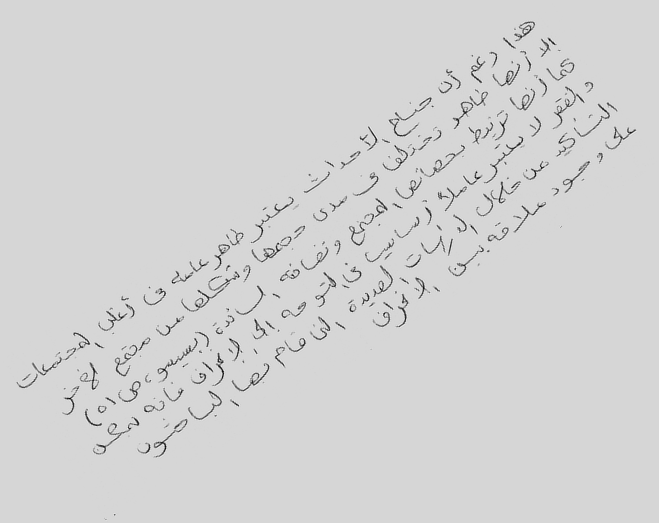 هذا رغم أن جناح الأحداث يعتبر ظاهر عامه فى أغلب المجتمعات
إلا أنها ظاهر تختلف فى مدى حجمها وشكلها من مجتمع لآخر
كما أنها ترتبط بخصائص المجتمع وثقافته السائدة (بسيسو، ص ٥١)
والفقر لا يعتبر عاملاً أساسيا فى التوجه إلى الانحراف فانه يمكن
التأكيد من خلال الدراسات العديدة التى قام بها الباحثون
على وجود علاقه بين الانحراف